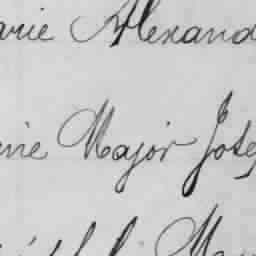 arie Alexand
ine Major Jose